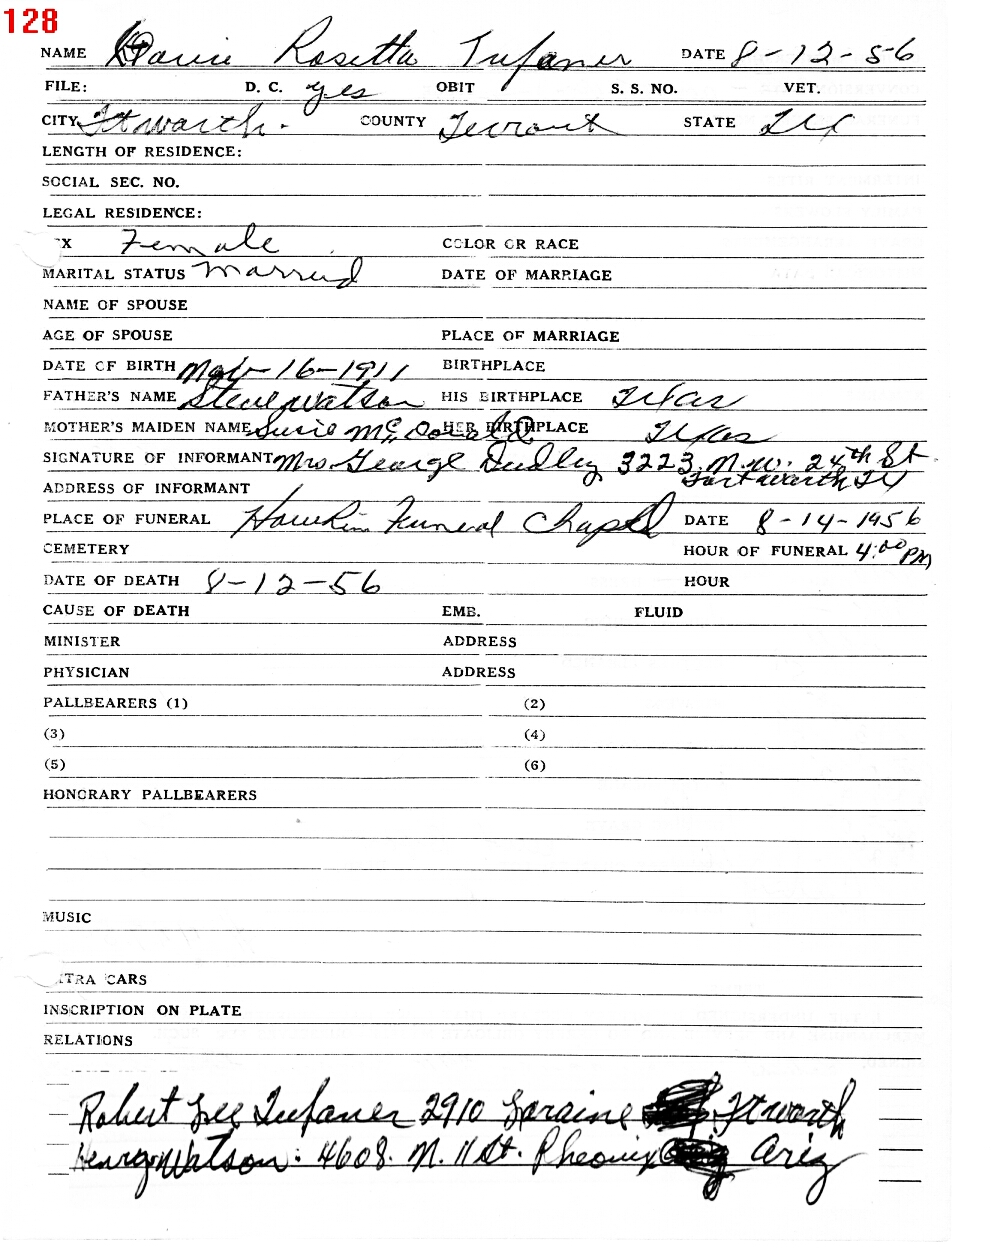 128
NAME Rosetta Tufaner DATE 8-12-56
FILE: D. C. yes OBIT S. S. NO. VET.
CITY Ft Worth. COUNTY Terrant STATE Tex
LENGTH OF RESIDENCE:
SOCIAL SEC. NO.
LEGAL RESIDENCE:
EX Female COLOR OR RACE
MARITAL STATUS Married DATE OF MARRIAGE
NAME OF SPOUSE
AGE OF SPOUSE PLACE OF MARRIAGE
DATE OF BIRTH 16-1911 BIRTHPLACE
FATHER'S NAME Steve Watson HIS BIRTHPLACE Texas
MOTHER'S MAIDEN NAME Susie McDonald HER BIRTHPLACE Texas
SIGNATURE OF INFORMANT Mrs. George Dudley 3223 N.W. 24th St
ADDRESS OF INFORMANT Fort Worth Tx
PLACE OF FUNERAL Hawkin Funeral Chapel DATE 8-14-1956
CEMETERY HOUR OF FUNERAL 4:00 PM
DATE OF DEATH 8-12-56 HOUR
CAUSE OF DEATH EMB. FLUID
MINISTER ADDRESS
PHYSICIAN ADDRESS
PALLBEARERS (1) (2)
(3) (4)
(5) (6)
HONORARY PALLBEARERS
MUSIC
TRA CARS
INSCRIPTION ON PLATE
RELATIONS
Robert Lee Tufaner 2910 Loraine Ft Worth
Henry Watson: 4608. N. 11 St. Pheonix Ariz